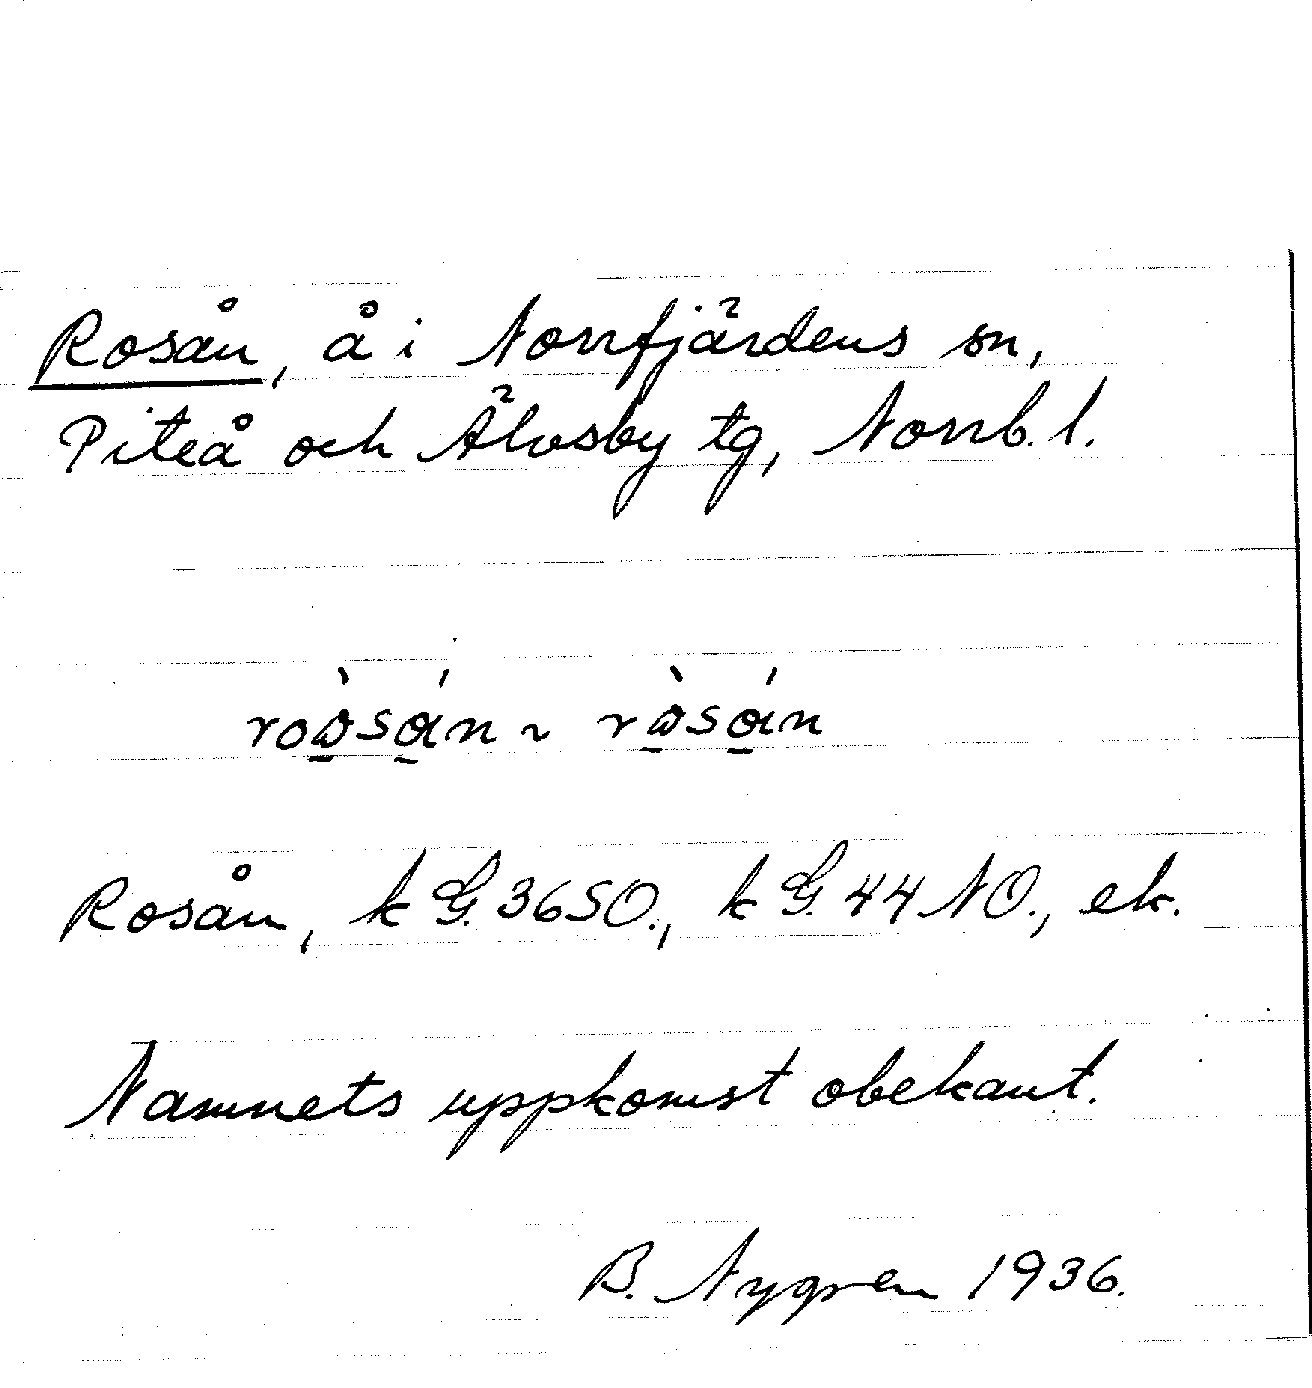 Rosån, å i Norrfjärdens sn,
Piteå och Älvsby tg, Norrb. l.
Rosån, k G. 36 SO., k G. 44 NO., ek.
Namnets uppkomst obekant.
B. Nygren 1936.